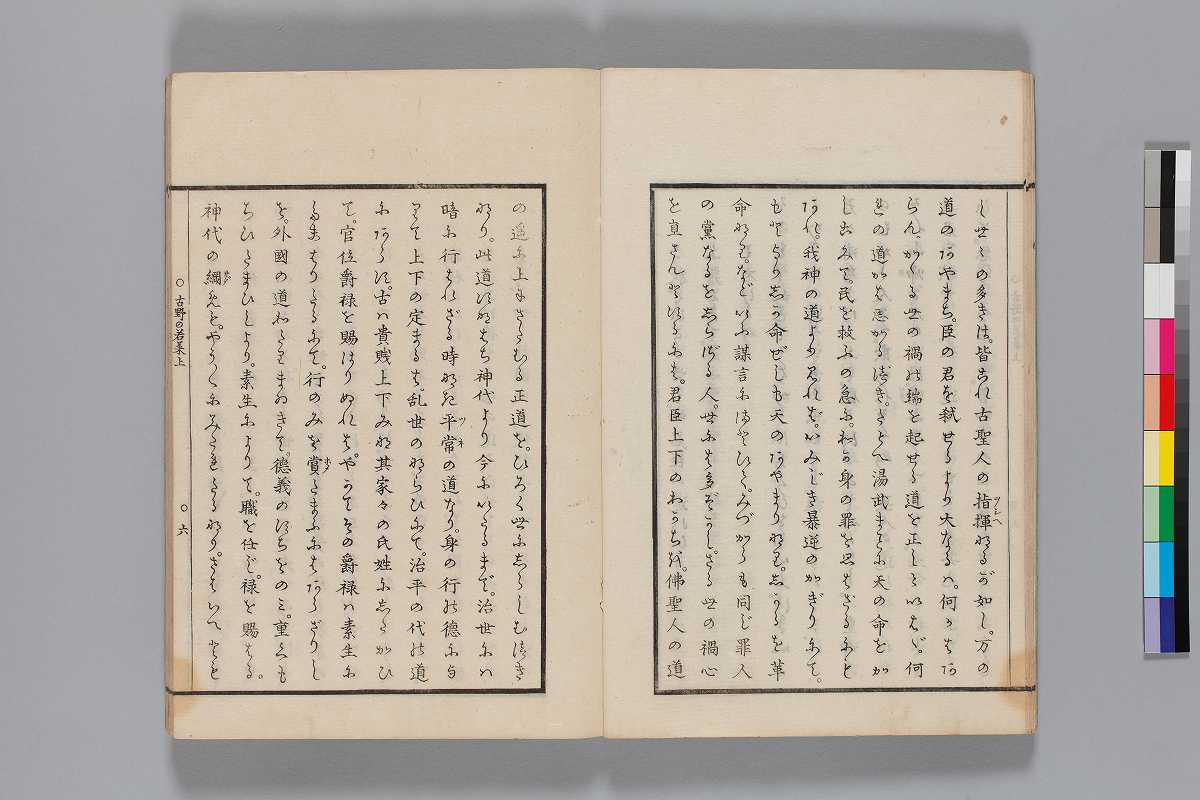 し世々の多きは。皆これ古聖人の指揮なるが如し。万の
道のあやまち。臣の君を弑せるより大なるハ。何かはあ
らん。かゝる世の禍の端を起せる道を正しといはゞ。何
れの道かは悪かるべき。たとへ湯武まことに天の命をか
しこみて。民を救ふの急に。わが身の罪を思はざるにも
あれ。我神の道より見れば。いみじき暴逆のかぎりにて。
もとよりしか命ぜしも天のあやまりなり。しかるを革
命なり。などいふ謀言にまどひて。みづからも同じ罪人
の黨なるをしらぬ人。世には多ぞかし。さる世の禍心
を直さんとするには。君臣上下のわかちを。佛聖人の道
の遥に上にきはむる正道を。ひろく世にしらしむべき
なり。此道すなはち神代より今にいたるまで。治世にハ
暗に行はれざる時なき平常の道なり。身の行の徳に
りて上下の定まるは。乱世のならひにて。治平の代の道
にあらず。古ハ貴賤上下みな其家々の氏姓にしたがひ
て。官位爵禄を賜はりぬれば。やがてその爵禄ハ素生に
たまはりたるにて。行のみを賞たまふにはあらざりし
を。外國の道わたりまゐきて。徳義のすぢをのミ。重くも
ちひたまひしより。素生によりて。職を任じ。禄を賜はる。
神代の綱も。やうくにみだれたるなり。さていへ
○古野の若菜上
○六
ツネ
ホメ